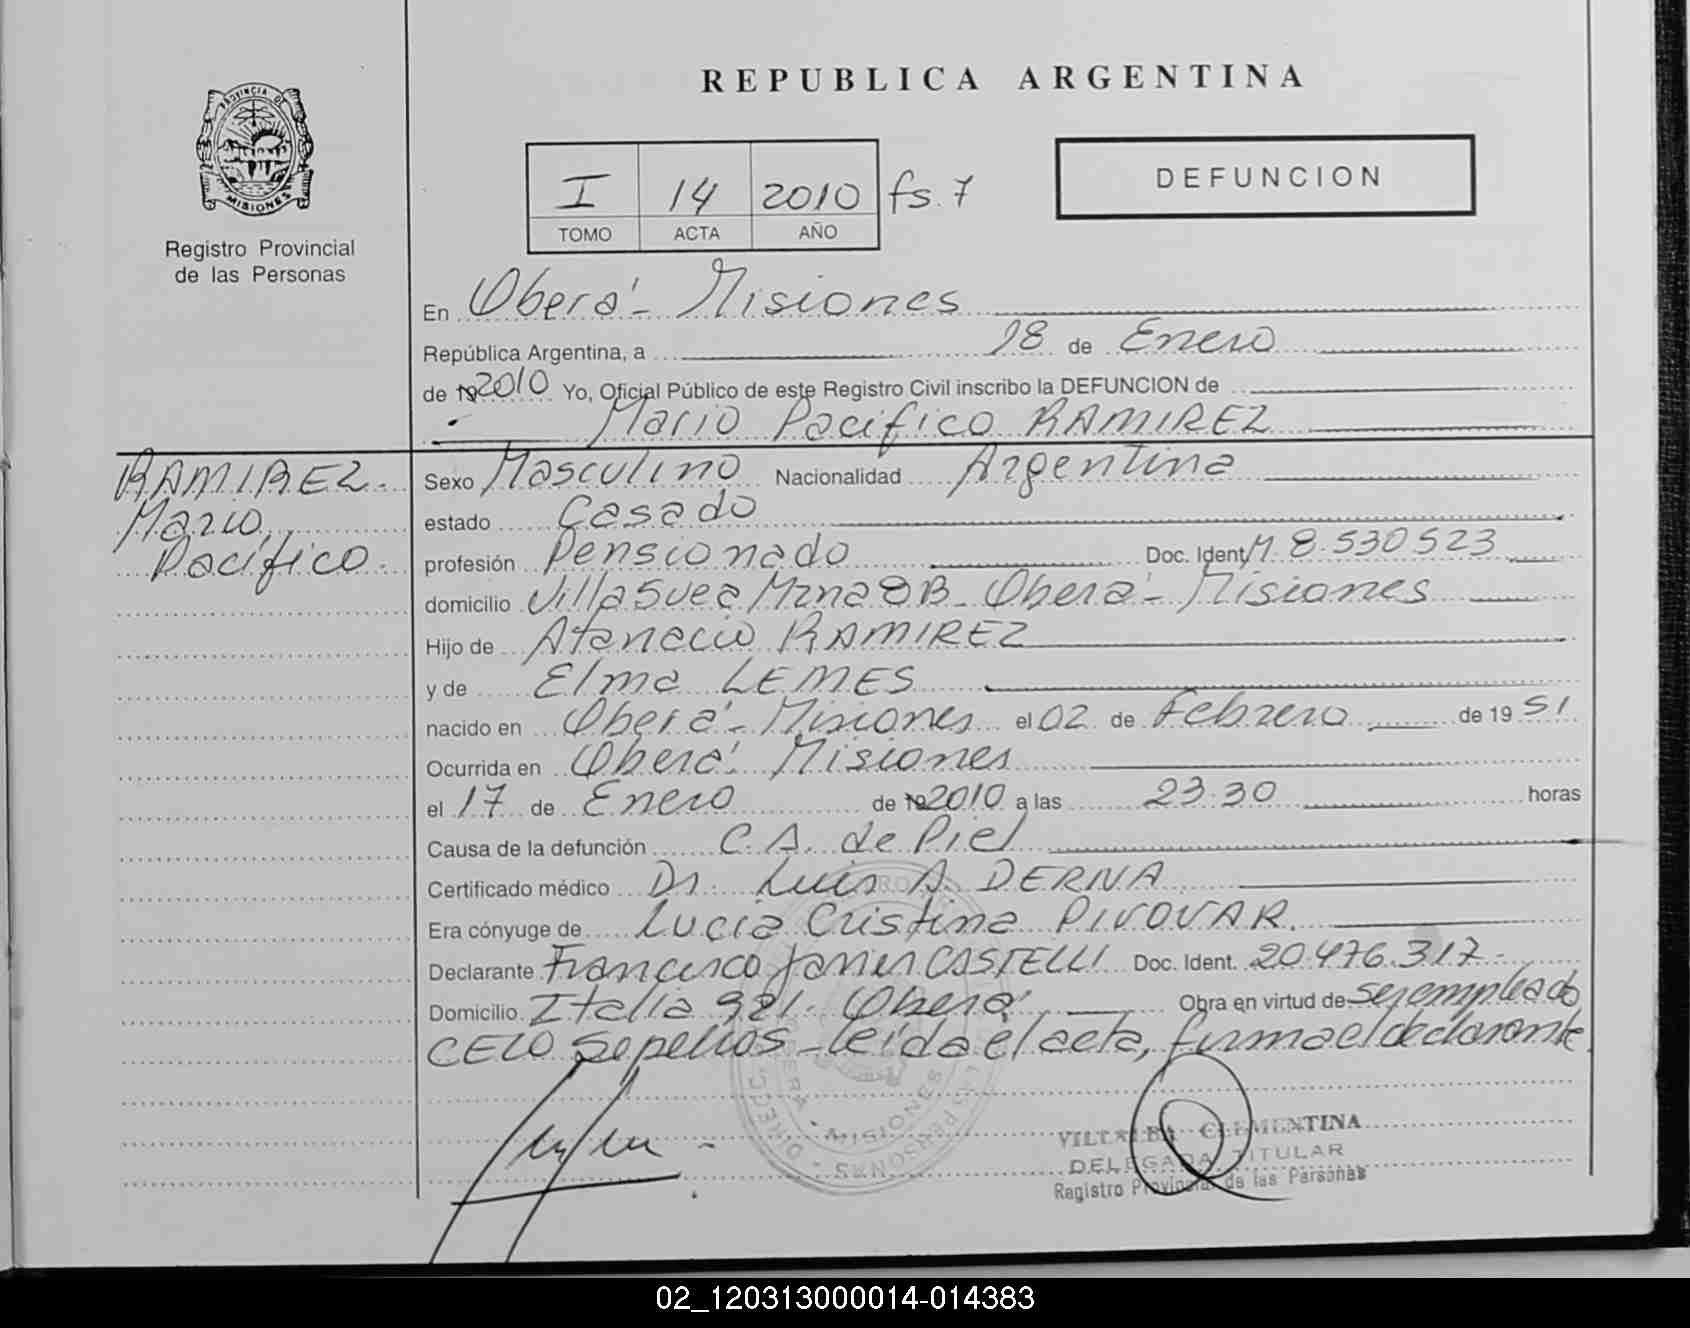 PROVINCIA DE
MISIONES
Registro Provincial
de las Personas
REPUBLICA ARGENTINA
I 14 2010 fs. 7
TOMO ACTA AÑO
DEFUNCION
En Oberá - Misiones
República Argentina, a 18 de Enero
de 19 2010 Yo, Oficial Público de este Registro Civil inscribo la DEFUNCION de
Mario Pacifico RAMIREZ
RAMIREZ
Mario
Pacifico
Sexo Masculino Nacionalidad Argentina
estado Casado
profesión Pensionado Doc. Ident M 8.530523
domicilio Villa Svea Mzna 8B - Oberá - Misiones
Hijo de Atanacio RAMIREZ
y de Elma LEMES
nacido en Oberá - Misiones el 02 de Febrero de 19 51
Ocurrida en Oberá - Misiones
el 17 de Enero de 19 2010 a las 23.30 horas
Causa de la defunción C.A. de Piel
Certificado médico Dr. Luis A. DERNA
Era cónyuge de Lucia Cristina PIVOVAR.
Declarante Francisco Javier CASTELLI Doc. Ident. 20.476.317.-
Domicilio Italia 921. Oberá Obra en virtud de ser empleado
CELO Sepelios - leída el acta, firma el declarante
MISIONES
VILLALBA CLEMENTINA
DELEGADA TITULAR
Registro Provincial de las Personas
02_120313000014-014383